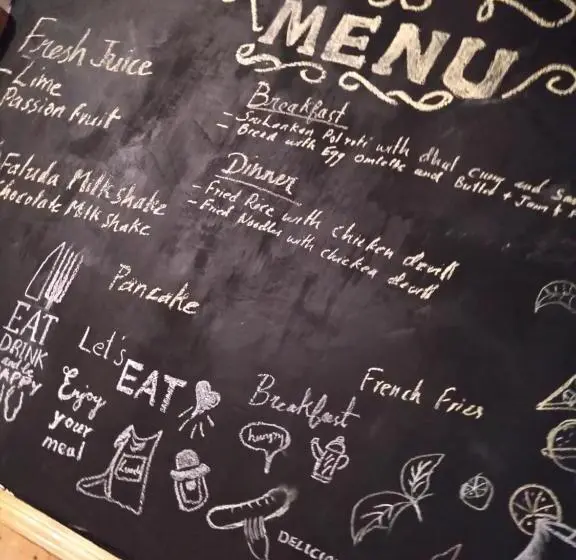 MENU
Fresh Juice
- Lime
Passion fruit
Faluda Milk shake
Chocolate Milk shake
Breakfast
- Sri Lankan Pol roti with dhal curry and
- Bread with Egg Omlette and Butter + Jam +
Dinner
- Fried Rice with chicken devill
- Fried Noodles with chicken devill
Pancake
French Fries
EAT
DRINK
and be
HAPPY
Let's
EAT
Enjoy
your
meal
Breakfast
hungry
Lunch
DELICIO